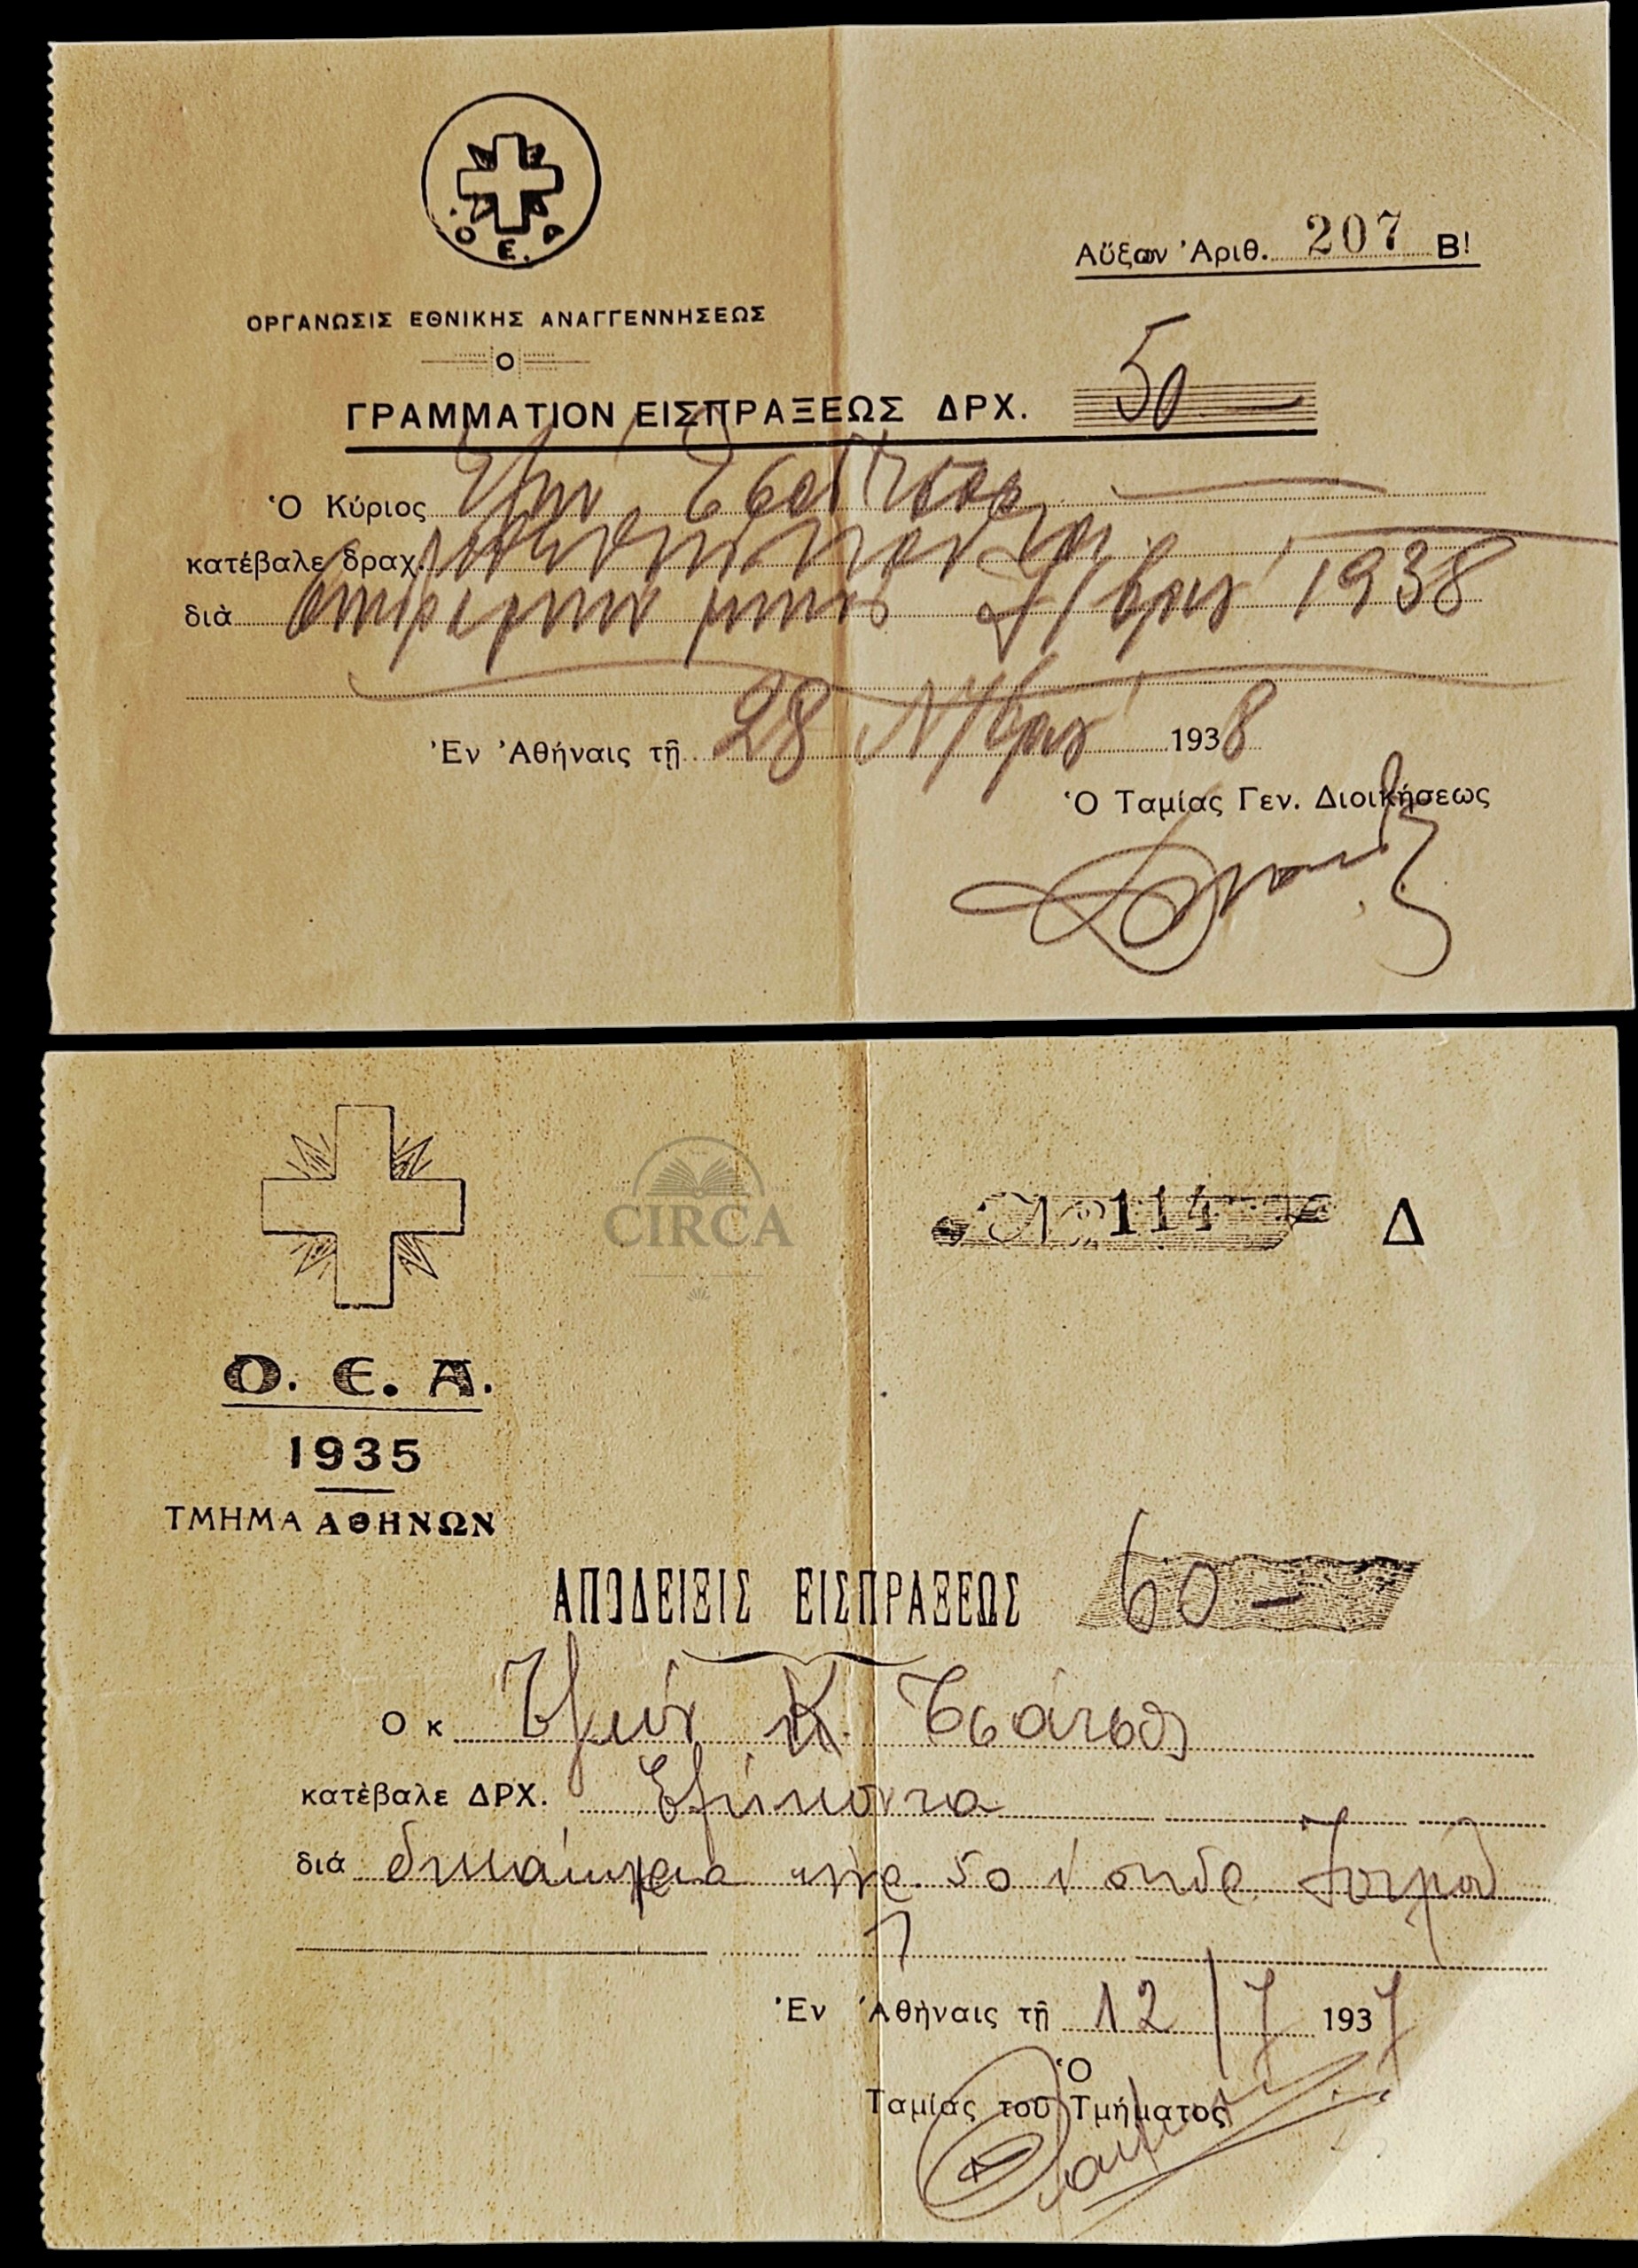 Ο Ε Α
Αὔξων Ἀριθ. 207 Β!
ΟΡΓΑΝΩΣΙΣ ΕΘΝΙΚΗΣ ΑΝΑΓΓΕΝΝΗΣΕΩΣ
ΓΡΑΜΜΑΤΙΟΝ ΕΙΣΠΡΑΞΕΩΣ ΔΡΧ. 50
Ὁ Κύριος
κατέβαλε δραχ. πεντήκοντα
διὰ μηνὸς 7/βρίου 1938
Ἐν Ἀθήναις τῇ 28 Ν/βρίου 1938
Ὁ Ταμίας Γεν. Διοικήσεως
CIRCA
114 Δ
Ο. Ε. Α.
1935
ΤΜΗΜΑ ΑΘΗΝΩΝ
ΑΠΟΔΕΙΞΙΣ ΕΙΣΠΡΑΞΕΩΣ 60
Ο κ Κ. Τσάτσος
κατέβαλε ΔΡΧ. Ἑξήκοντα
διά 50
Ἐν Ἀθήναις τῇ 12/7 1937
Ὁ
Ταμίας τοῦ Τμήματος